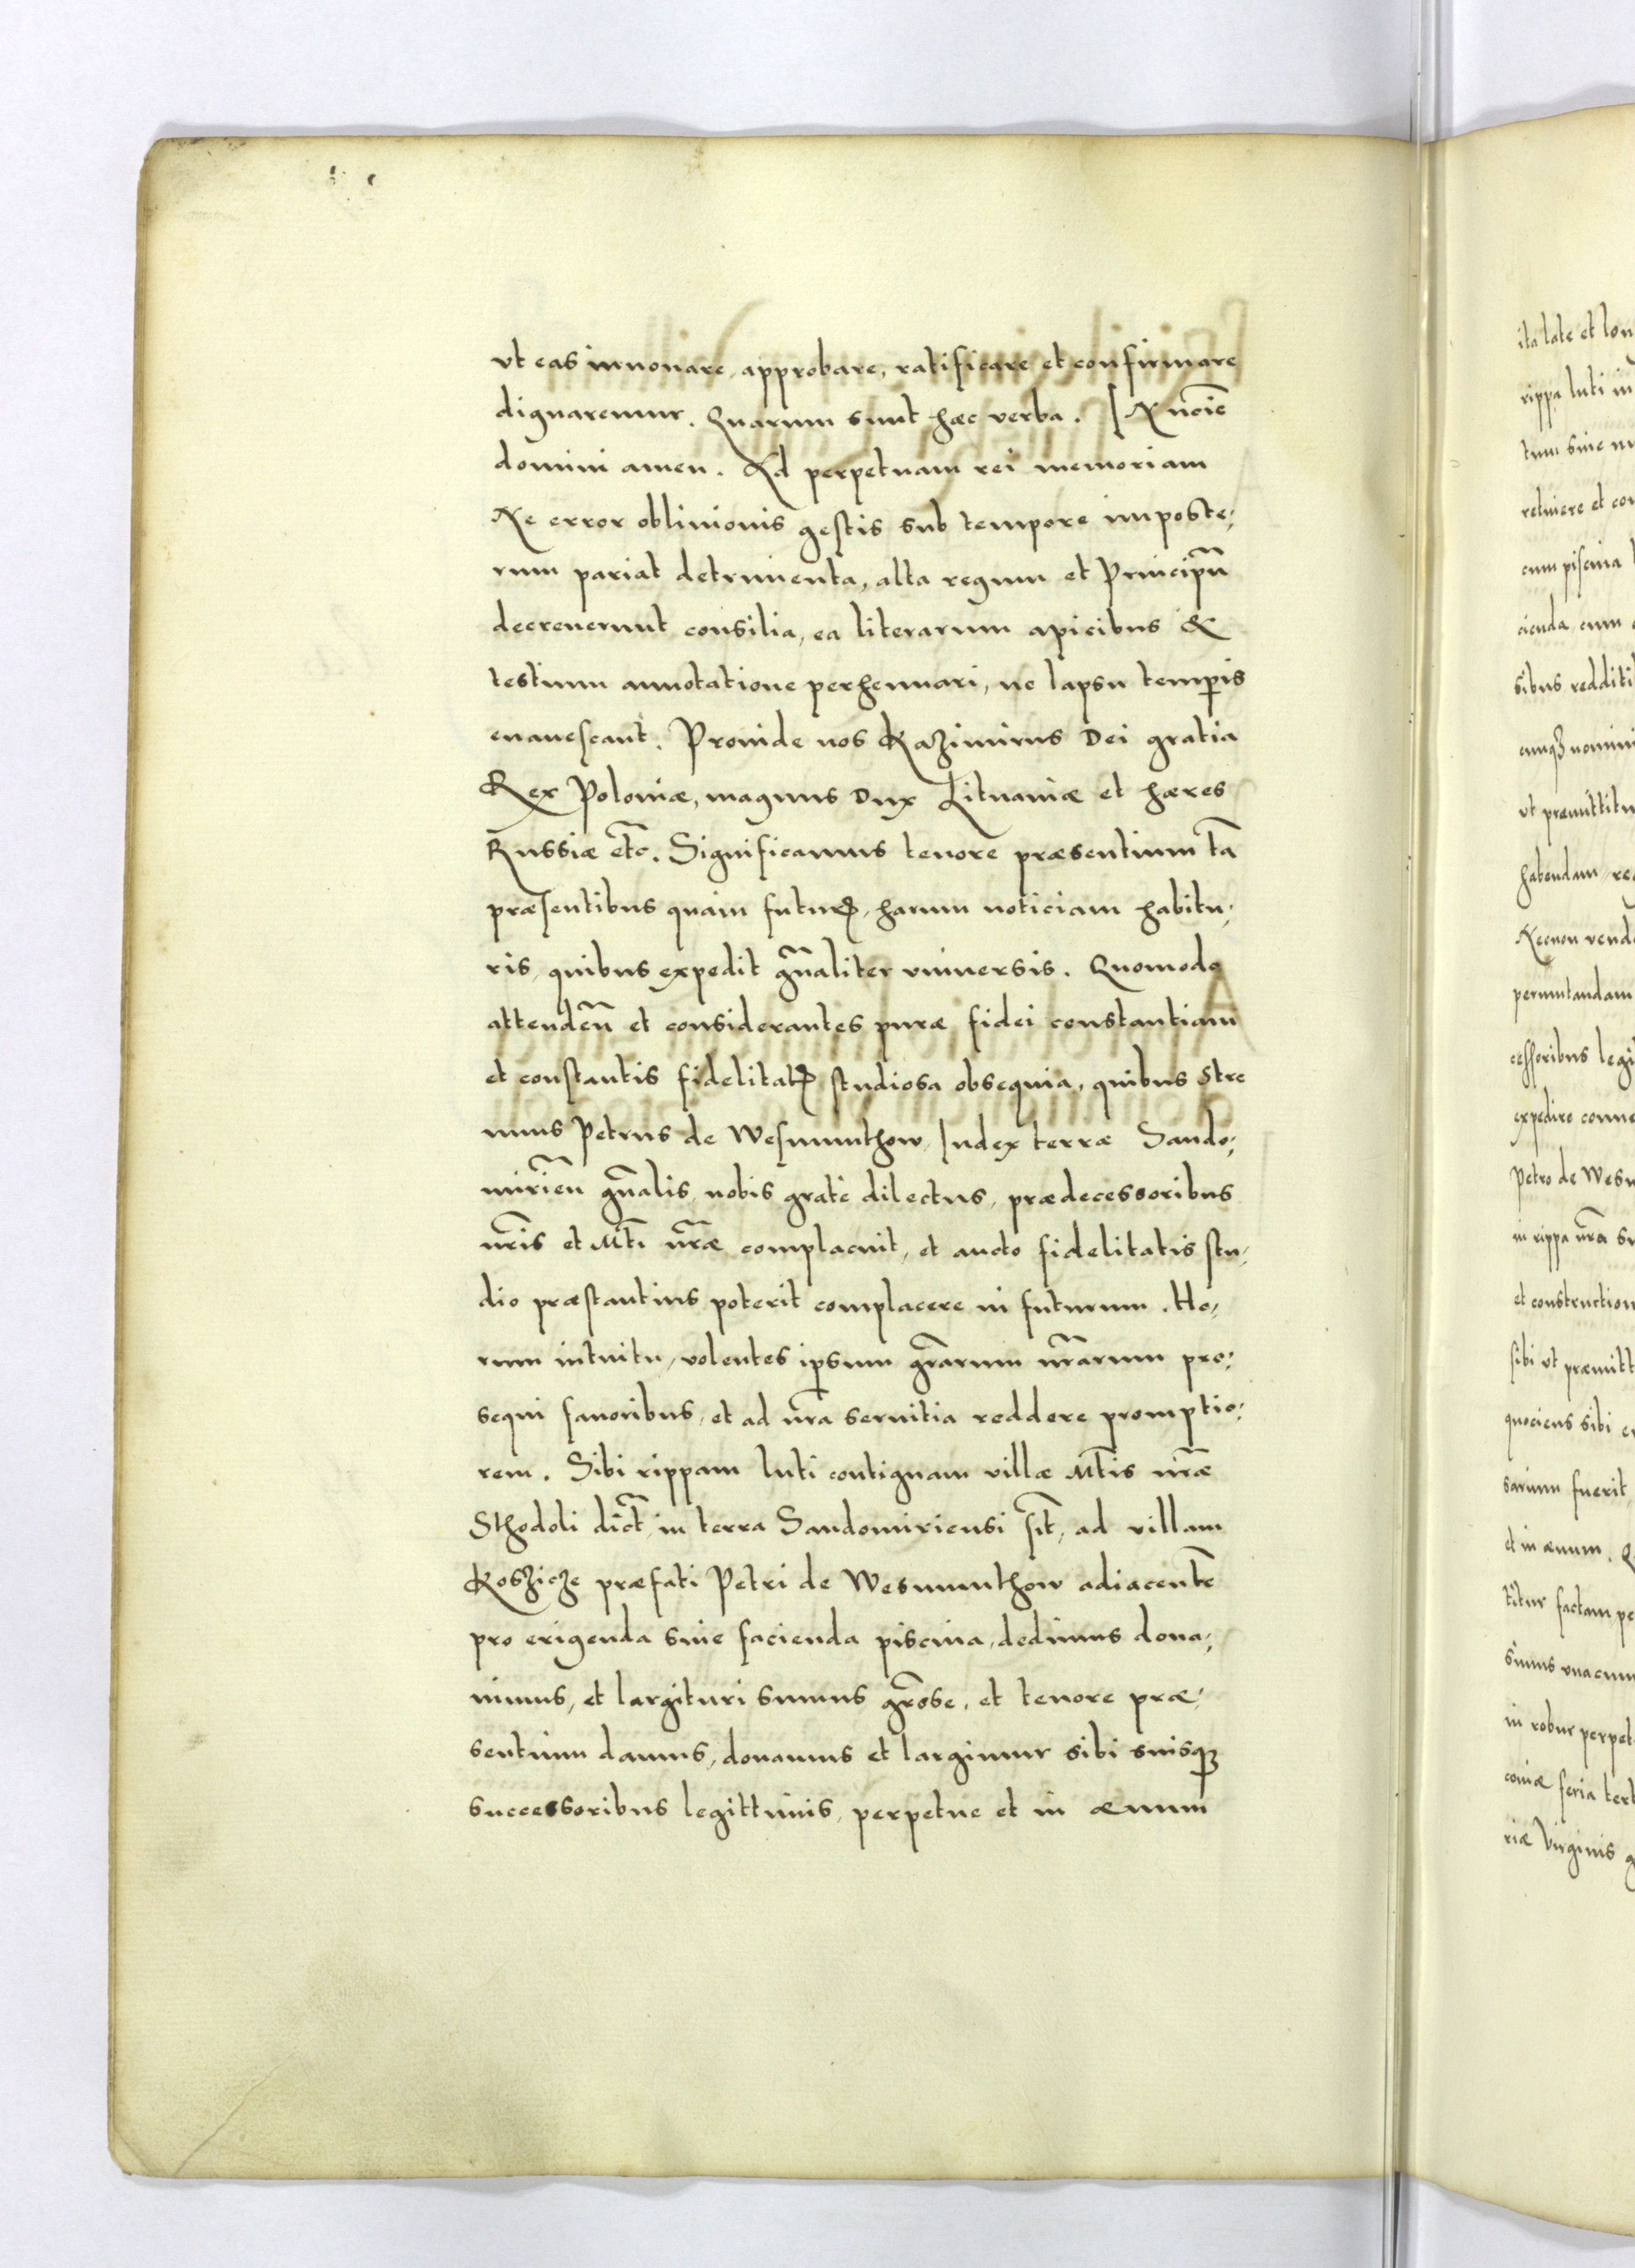 vt eas innouare, approbare, ratificare et confirmare
dignaremur. Quarum sunt hæc verba. In nōie
domini amen. Ad perpetuam rei memoriam
Ne error obliuionis gestis sub tempore imposte,
rum pariat detrimenta, alta regum et Principū
decreuerunt consilia, ea literarum apicibus &
testium annotatione perhennari, ne lapsu temp̄is
euanescant. Proinde nos Kazimirus Dei gratia
Rex Poloniæ, magnus Dux Lituaniæ et hæres
Russiæ etc̄. Significamus tenore præsentium tā
præsentibus quàm futuꝝ, harum noticiam habitu,
ris, quibus expedit gñaliter vniuersis. Quomodo
attendeñ et considerantes puræ fidei constantiam
et constantis fidelitatꝭ studiosa obsequia, quibus Stre
nuus Petrus de Wesmunthow Iudex terræ Sando,
mirieñ gñalis, nobis gratè dilectus, prædecessoribus
nr̄is et Mt̄i nr̄æ complacuit, et aucto fidelitatis stu,
dio præstantius poterit complacere in futurum. Ho,
rum intuitu, volentes ipsum gr̄arum nr̄arum pro,
sequi fauoribus, et ad nr̄a seruitia reddere promptio,
rem. Sibi rippam luti contiguam villæ Mt̄is nr̄æ
Sthodoli dict̄, in terra Sandomiriensi sit̄, ad villam
Koszicze præfati Petri de Wesmunthow adiacentē
pro erigenda siue facienda piscina, dedimus dona,
uimus, et largituri sumus gr̄ose, et tenore præ,
sentium damus, donamus et largimur sibi suisqꝫ
successoribus legittimis, perpetue et in æuum
ita late et lon
rippa luti in
tum siue
retinere et con
cum piscina
cienda, cum
sibus, redditi
cumqꝫ nomini
vt præmittitu
habendam, re
Necnon vend
permutandam
cessoribus legi
expedire conue
Petro de Wesm
in rippa nr̄a su
et construction
sibi vt præmitt
quociens sibi
sarium fuerit,
et in æuum.
titur factam, pe
simus vnacum
in robur perpet
couiæ feria tert
riæ Virginis